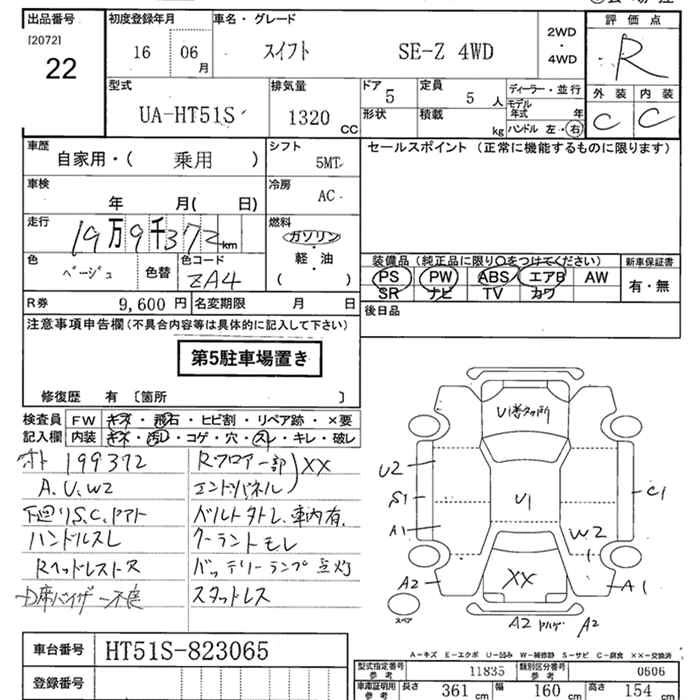 出品番号 初度登録年月 車名・グレード 2WD・4WD 評価点
[2072]
22 16 06月 スイフト SE-Z 4WD R
型式 排気量 ドア 5 定員 5人 ディーラー・並行 外装 内装
UA-HT51S 1320 CC 形状 積載 kg モデル年式 年 C C
ハンドル 左・右
車歴 シフト セールスポイント (正常に機能するものに限ります)
自家用・( 乗用 ) 5MT
車検 冷房
年 月( 日) AC
走行 燃料
19万9千372km ガソリン
軽・油
( )
色 色替 色コード
ベージュ ZA4
装備品(純正品に限り○をつけてください) 新車保証書
PS PW ABS エアB AW 有・無
SR ナビ TV カワ
R券 9,600円 名変期限 月 日
後日品
注意事項申告欄(不具合内容等は具体的に記入して下さい)
第5駐車場置き
修復歴 有〔箇所 〕
検査員 FW キズ・飛石・ヒビ割・リペア跡・×要
記入欄 内装 キズ・汚レ・コゲ・穴・スレ・キレ・破レ
オト 199372 Rフロアー部 XX
A.U.W2 エンドパネル
下回りS.C. ベルト 車内有.
ハンドルスレ クーラントモレ
バッテリーランプ点灯
スタッドレス
U1
U2
S1
A1
U1
C1
W2
XX
A2
A1
A2 A2
スペア
A-キズ E-エクボ U-凹み W-補修跡 S-サビ C-腐食 XX-交換済
車台番号 HT51S-823065
登録番号
型式指定番号 参考 11835 類別区分番号 参考 0606
車庫証明用 参考 長さ 361cm 幅 160cm 高さ 154cm